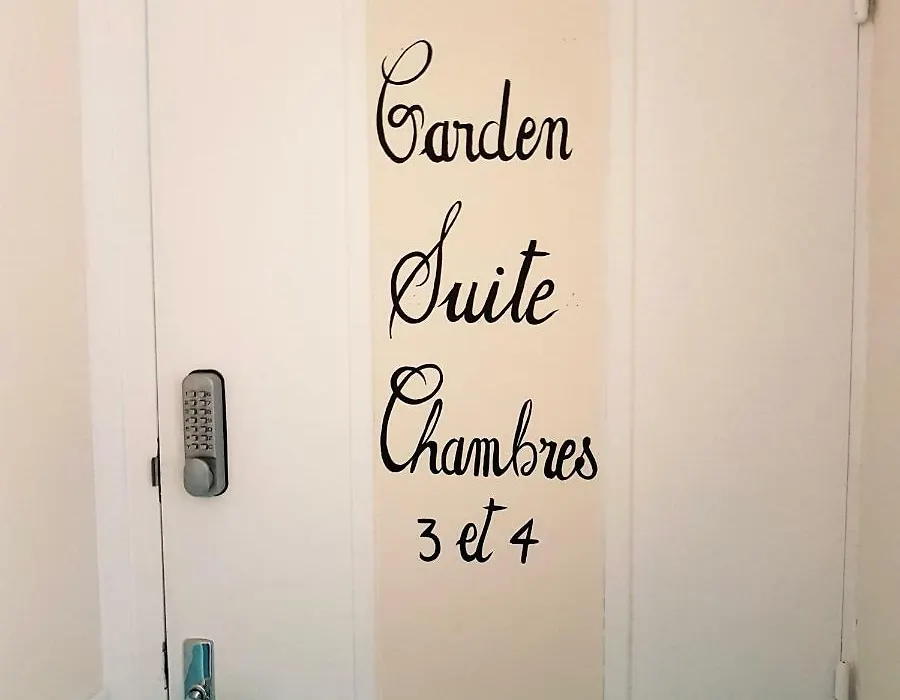 Garden
Suite
Chambres
3 et 4